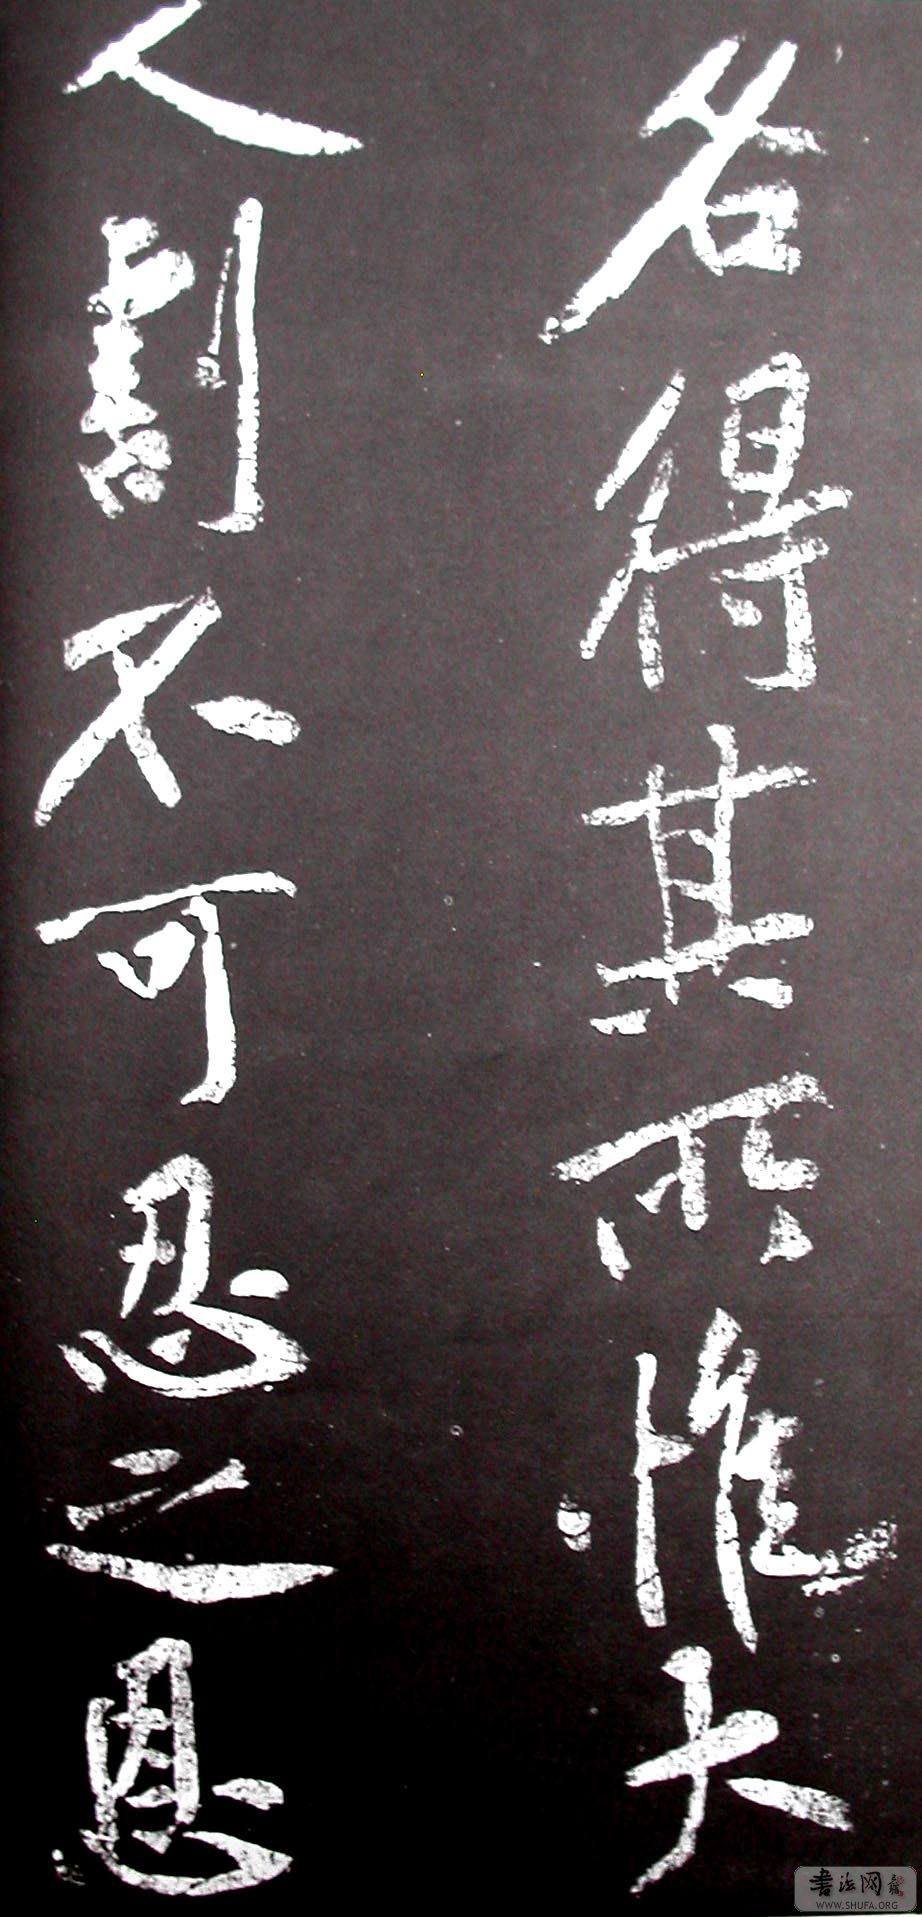 各得其所惟大
人割不可忍之恩
书法网
WWW.SHUFA.ORG